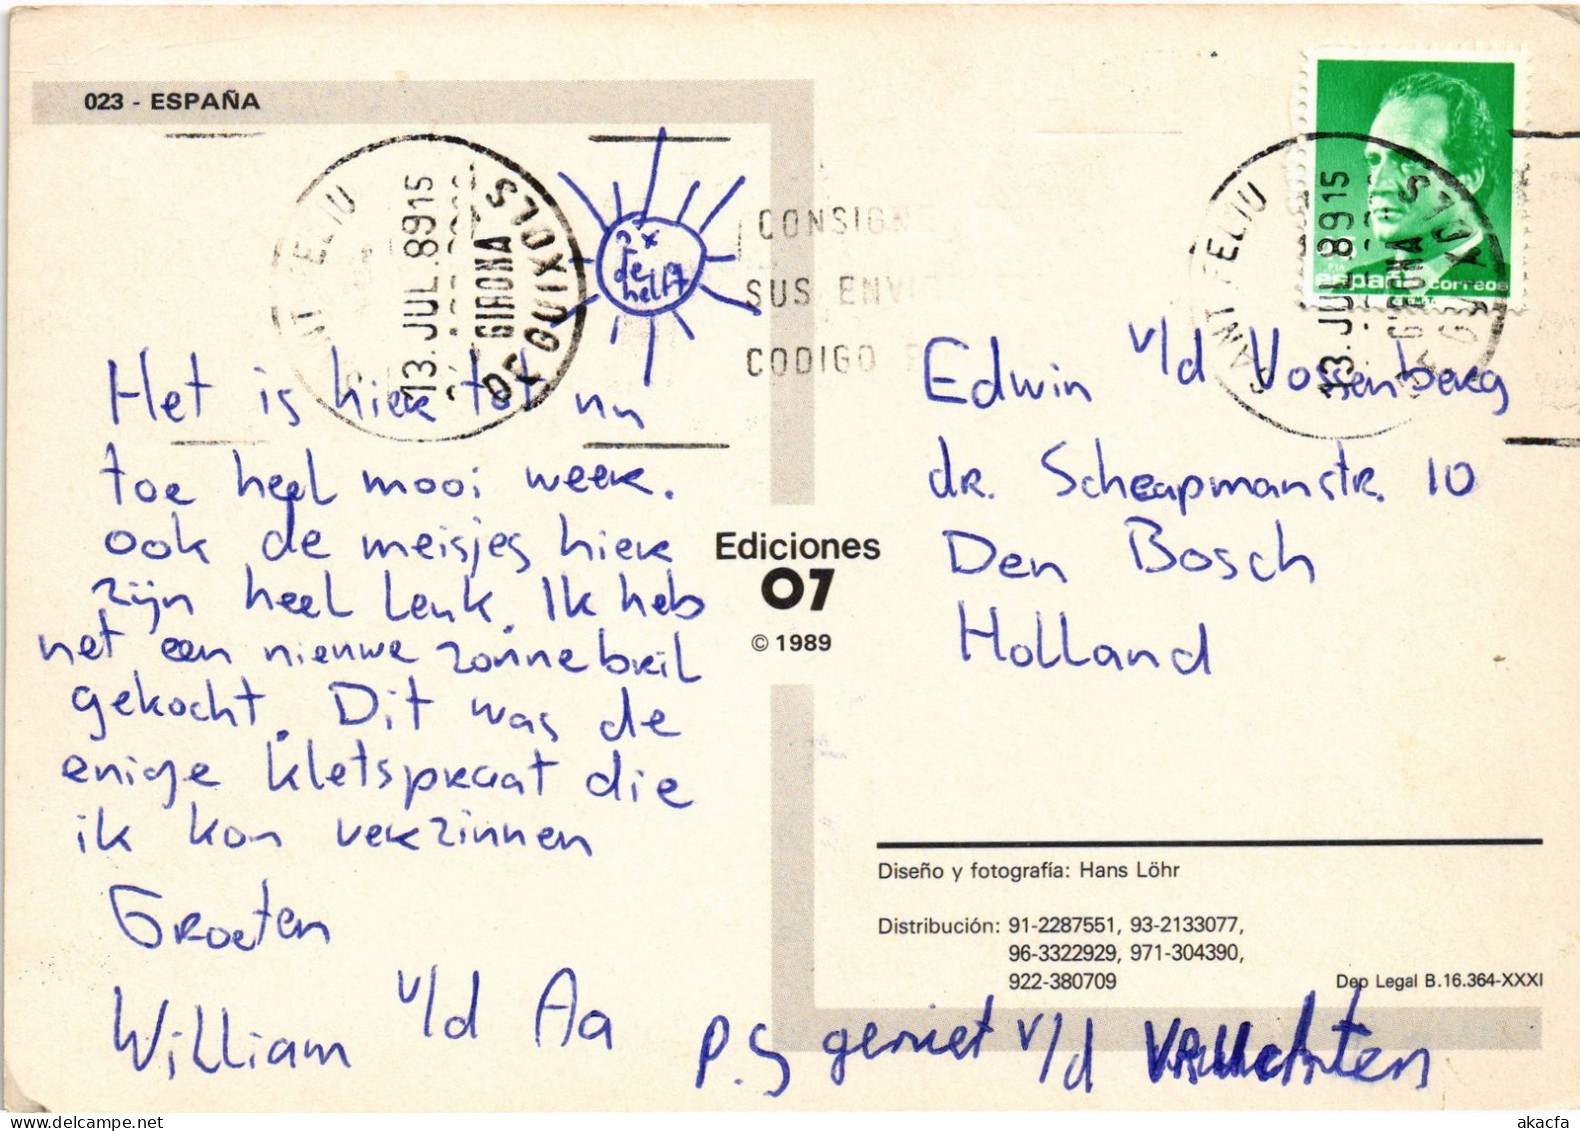 023 - ESPAÑA
SANT FELIU
13.JUL.89 15
GIRONA
DE GUIXOLS
2x
de
helft
CONSIGN
SUS ENVI
CODIGO P
SANT FELIU
13.JUL.89 15
GIRONA
DE GUIXOLS
españa correos
Het is hier tot nu
toe heel mooi weer.
ook de meisjes hier
zijn heel leuk. Ik heb
net een nieuwe zonnebril
gekocht. Dit was de
enige kletspraat die
ik kon verzinnen
Groeten
William v/d Aa
P.S geniet v/d
Ediciones
07
© 1989
Edwin v/d Vossenberg
dr. Scheapmanstr. 10
Den Bosch
Holland
Diseño y fotografía: Hans Löhr
Distribución: 91-2287551, 93-2133077,
96-3322929, 971-304390,
922-380709
Dep Legal B.16.364-XXXI
akacfa-delcampe.net
akacfa